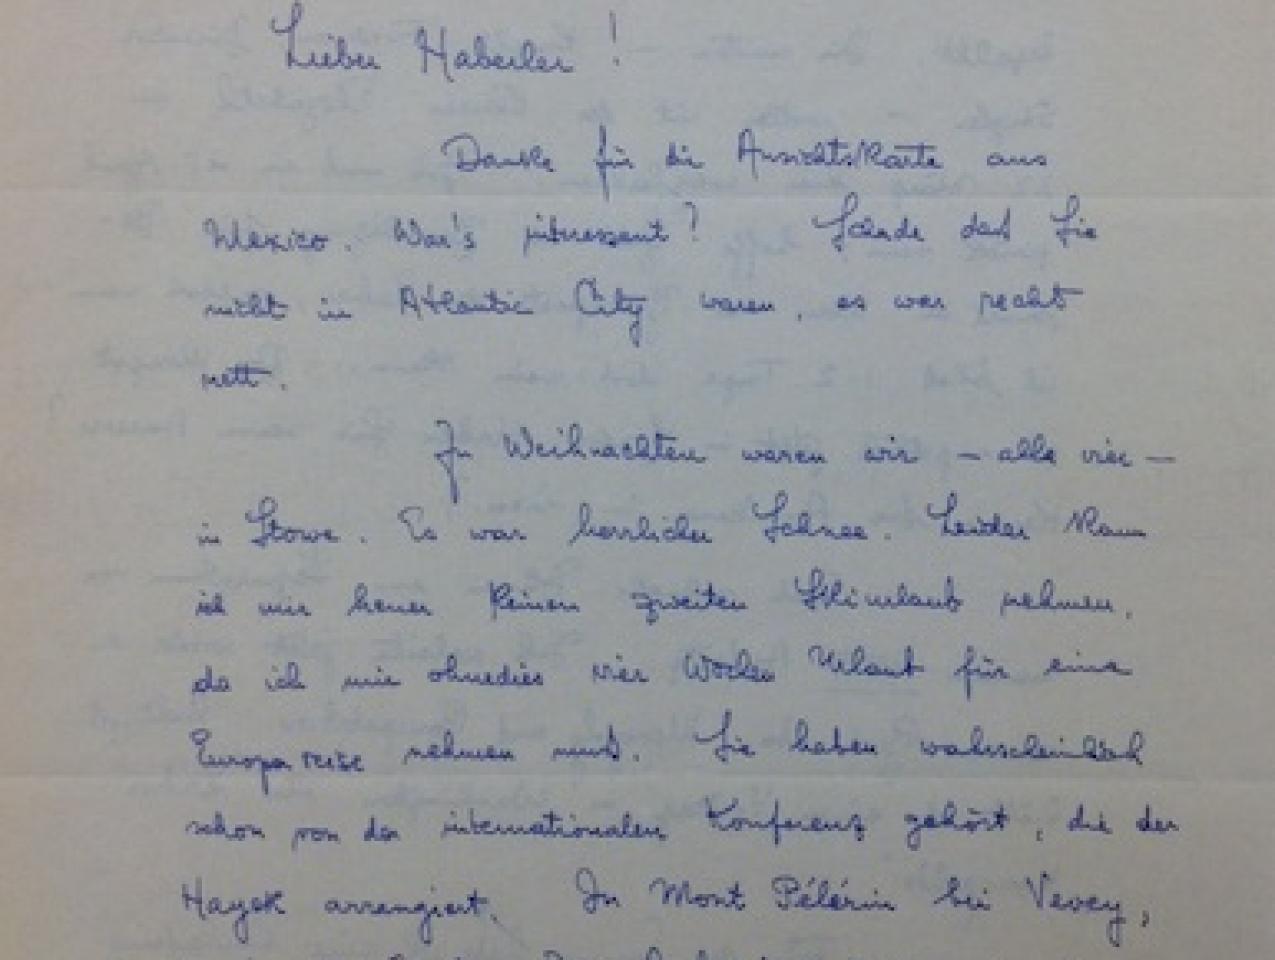 Lieber Haberler!
Danke für die Ansichtskarte aus
Mexico. War's interessant? Schade daß Sie
nicht in Atlantic City waren, es war recht
nett.
Zu Weihnachten waren wir – alle vier –
in Stowe. Es war herrlicher Schnee. Leider kann
ich mir heuer keinen zweiten Skiurlaub nehmen,
da ich mir ohnedies vier Wochen Urlaub für eine
Europareise nehmen muß. Sie haben wahrscheinlich
schon von der internationalen Konferenz gehört, die der
Hayek arrangiert. In Mont Pélérin bei Vevey,